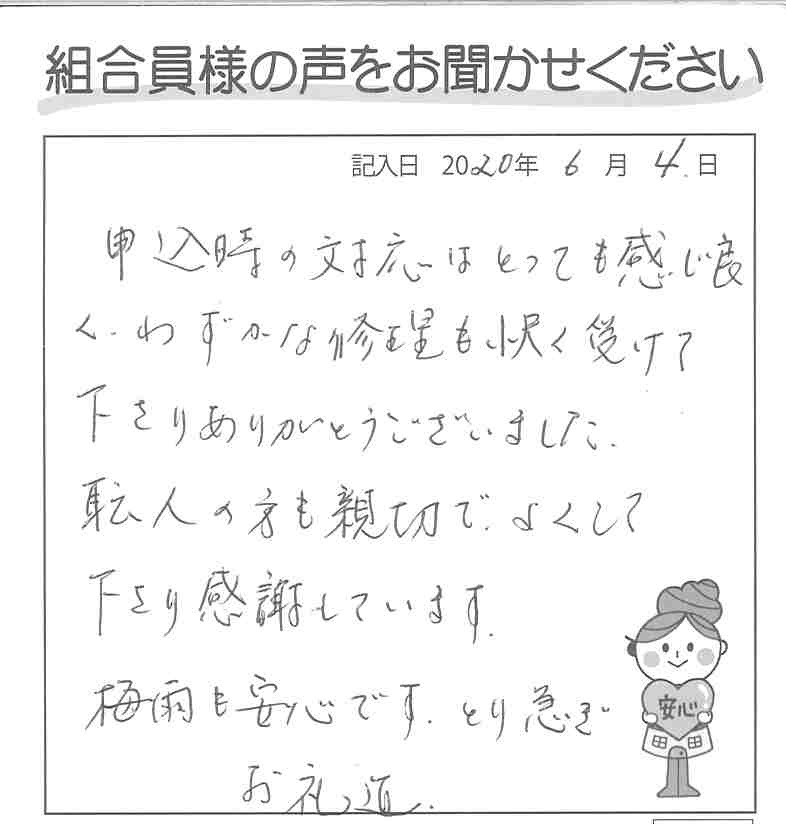 組合員様の声をお聞かせください
記入日 2020年 6月 4日
申込時の対応はとっても感じ良
く、わずかな修理も快く受けて
下さりありがとうございました。
耺人の方も親切で、よくして
下さり感謝しています。
梅雨も安心です。とり急ぎ
お礼迄.
安心